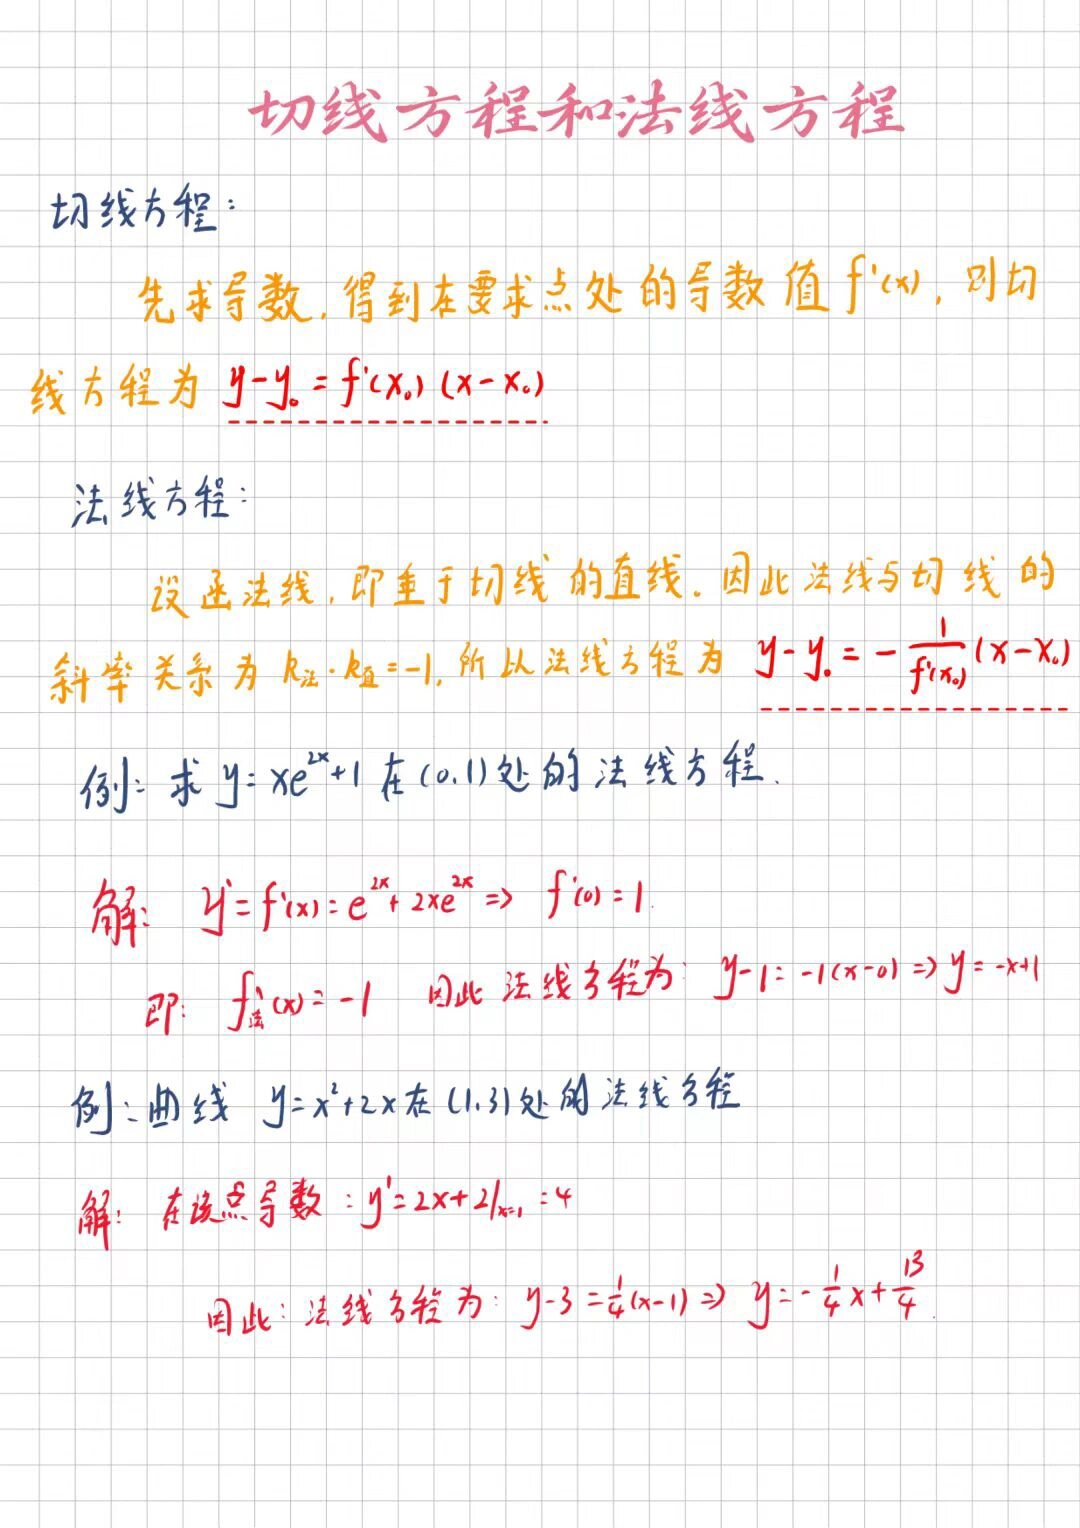 切线方程和法线方程
切线方程：
先求导数，得到在要求点处的导数值 f'(x)，则切
线方程为 y-y₀ = f'(x₀)(x-x₀)
法线方程：
设函法线，即垂于切线的直线。因此法线与切线的
斜率关系为 k法·k直=-1，所以法线方程为 y-y₀ = -1/f'(x₀) (x-x₀)
例：求 y=xe^{2x}+1 在(0,1)处的法线方程.
解： y'=f'(x)=e^{2x}+2xe^{2x} => f'(0)=1.
即： f'法(x)=-1 因此法线方程为：y-1=-1(x-0) => y=-x+1
例：曲线 y=x²+2x在(1,3)处的法线方程
解：在该点导数：y'=2x+2|x=1 =4
因此：法线方程为：y-3=1/4(x-1) => y=-1/4x+13/4.